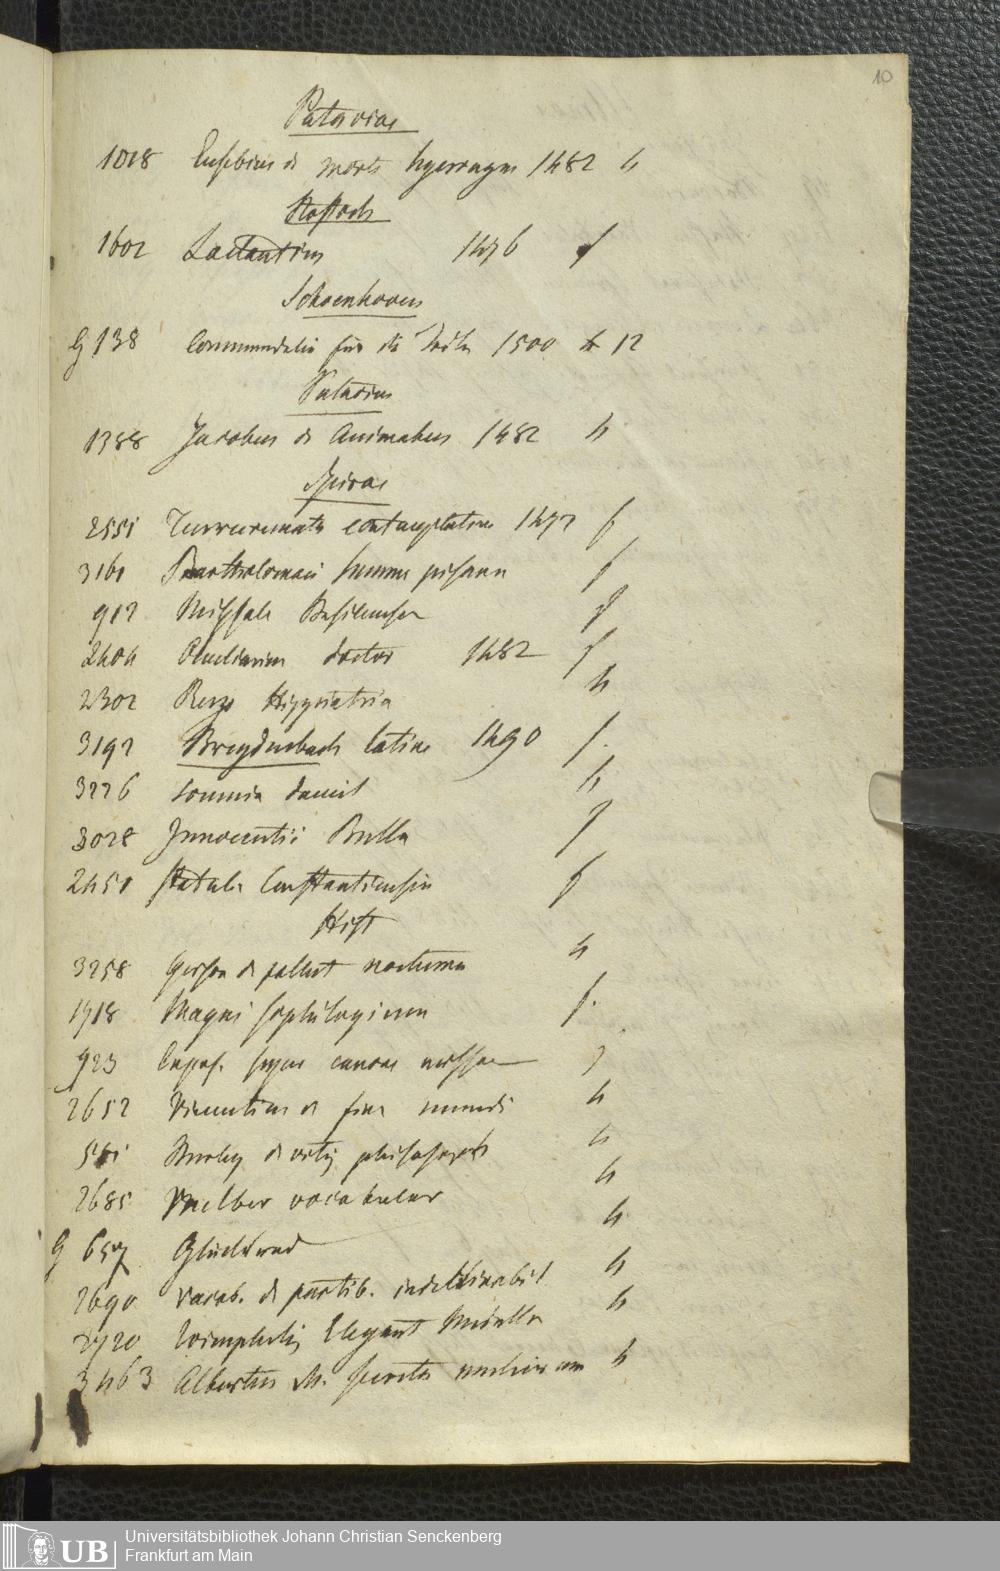 10
Pataviae
1018 Eusebius de morte hyeronymi 1482 4
Rostoch
1602 Lactantius 1476 f
Schoenhoven
G 138 Commendatien für die 1500 12
Patavius
1388 Jacobus de Animabus 1482 4
Spirae
2551 Turrecremata contemplationes 1477 f
3161 Bartholomaei summa pisana f
912 Missale Basiliense f
2404 doctor 1482 f
2302 4
3197 Breydenbach latine 1490 f.
3226 Somnia Daniel 4
3028 Innocentii Bulla f
2451 Statuta Constantiensia f
Hist
3258 Gerson de pollut nocturna 4
1718 Magni sophilogium f.
923 Expos. super canone missae f
2652 Vincentius de fine mundi 4
Burley de vitis philosoph 4
2685 Melber vocabular 4
G 657 Glücksrad 4
2690 Vocab. de partib. indeclinabil 4
2720 Wimpheling Elegant Medulla 4
3463 Albertus M. secreta mulierum 4
UB Universitätsbibliothek Johann Christian Senckenberg
Frankfurt am Main